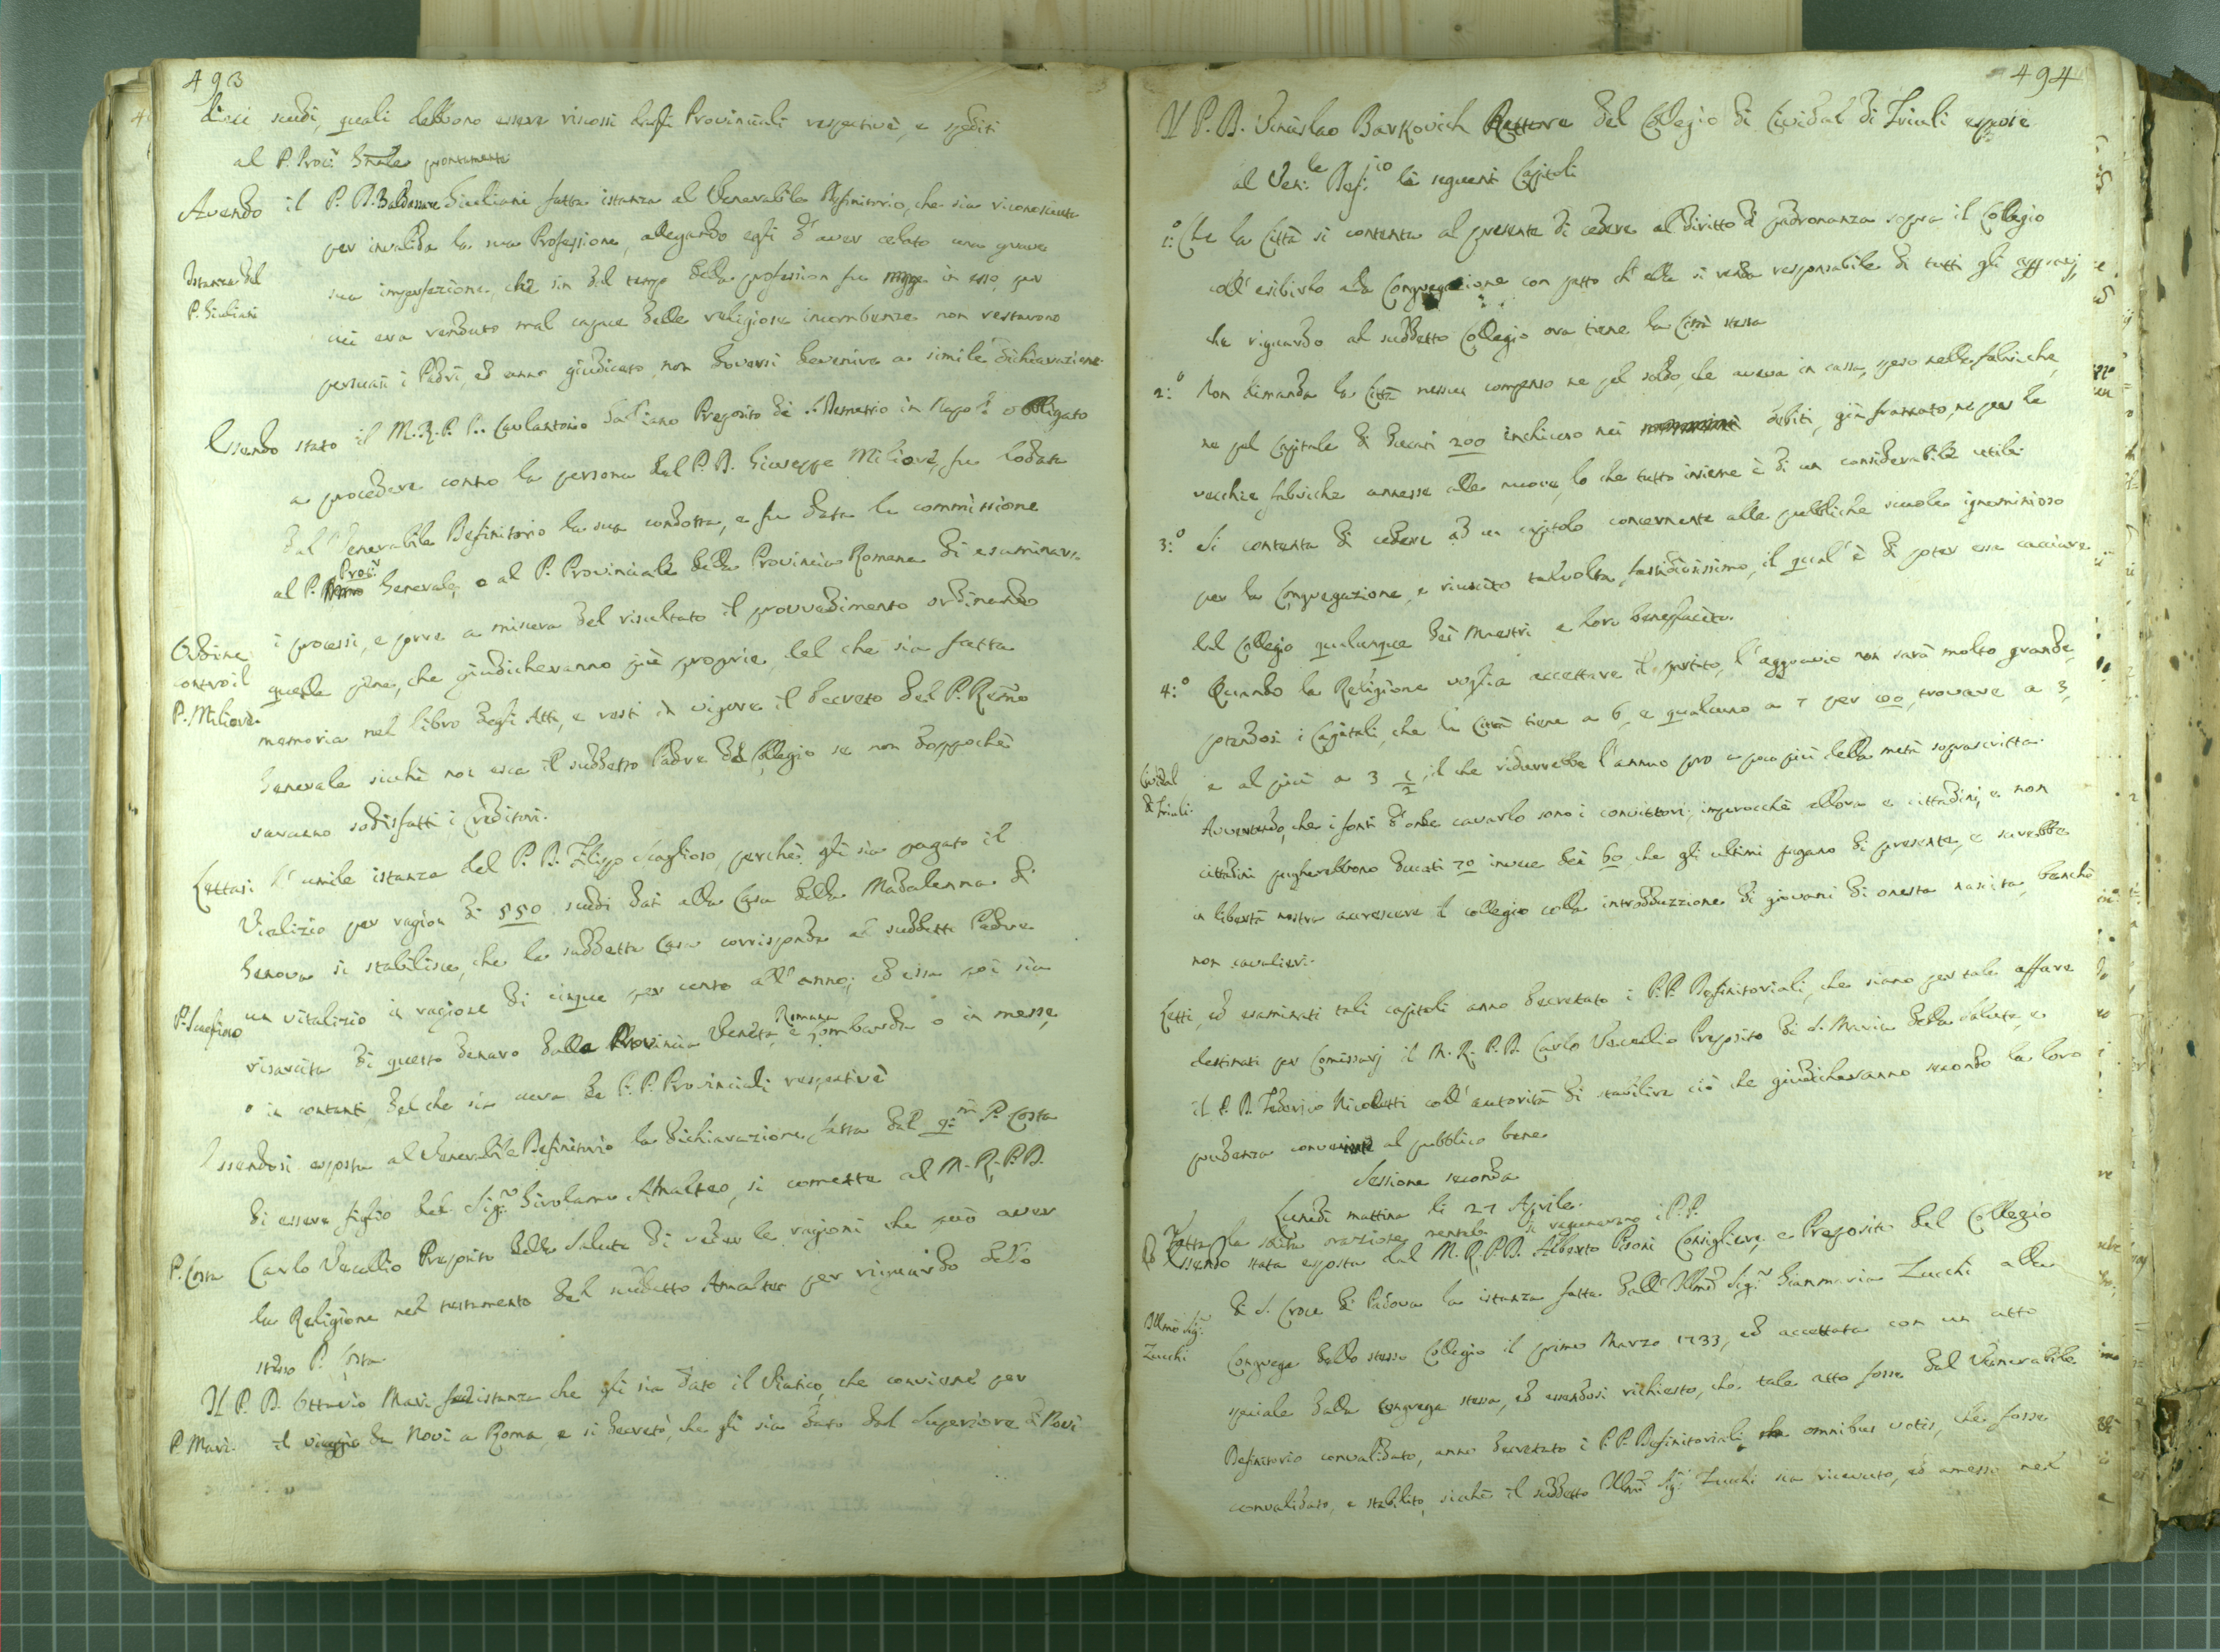 493
dieci scudi, quali debbono essere riscossi dagli Provinciali respectivè, e spediti
al P. Proc.r Gnale prontamente
Avendo il P. D. Baldassare Giuliani fatta istanza al Venerabile Definitorio, che sia riconosciuta
per invalida la sua Professione, allegando egli d'aver celato una grave
Istanza del
P. Giuliani
sua imperfezione, che sin dal tempo della profession fu in esso, per
cui era renduto mal capace delle religiose incombenze non restarono
persuasi i Padri, ed anno giudicato non doversi devenire a simile dichiarazione.
Essendo stato il M. R. P. D. Carlantonio Preposito di S. Demetrio in Napoli obbligato
a procedere contro la persona del P. D. Giuseppe Miliorè, fu lodata
dal Venerabile Definitorio la sua condotta, e fu data la commissione
al P. Proc.r Generale, e al P. Provinciale della Provincia Romana di esaminare
i processi, e porre a misura del risultato il provvedimento ordinando
Ordine
contro il
P. Miliorè.
quelle pene, che giudicheranno più proprie, del che sia fatta
memoria nel libro degli Atti, e resti in vigore il decreto del P. Rmo
Generale sicchè non esca il suddetto Padre dal Collegio se non doppochè
saranno sodisfatti i Creditori.
Lettasi l'umile istanza del P. D. Filippo Scaglioso, perchè gli sia pagato il
Vitalizio per ragion di 550 scudi dati alla Casa della Madalenna di
Genova si stabilisce, che la suddetta Casa corrisponda al suddetto Padre
un vitalizio in ragione di cinque per cento all'anno; ed essa poi sia
risarcita di questo denaro dalle Provincia Veneta, Romana e Lombarda o in messe,
o in contanti, del che sia cura de P. P. Provinciali respectivè
Essendosi esposta al Venerabile Definitorio la dichiarazione fatta dal q:m P. Costa
di essere figlio del Sig.r Girolamo Amalteo, si comette al M. R. P. D.
P. Costa
Carlo Vecellio Preposito della Salute di veder le ragioni che può aver
la Religione nel testamento del suddetto Amalteo per riguardo dello
stesso P. Costa
Il P. D. Ottavio Mari fa istanza che gli sia dato il Viatico, che conviene per
P. Mari.
il viaggio da Novi a Roma, e si decretò, che gli sia dato dal Superiore di Novi
494
Il P. D. Barkovich Rettore del Collegio di Cividal di Friuli espose
al Ven.le Def.io li seguenti Capitoli
1:o Che la Città si contenta al presente di cedere al diritto di padronanza sopra il Collegio
coll'esibirlo alla Congregazione con patto ch'ella si renda responsabile di tutti gli aggravj,
che riguardo al suddetto Collegio ora tiene la Città stessa
2:o Non dimanda la Città nessun compenso ne pel soldo, che aveva in cassa, speso nelle fabriche,
ne pel Capitale di ducati 200 inchiuso nei debiti, già francato, ne per le
vecchie fabriche annesse alle nuove, lo che tutto insieme è di un considerabile utile.
3:o Si contenta di cedere ad un capitolo concernente alle pubbliche scuole ignominioso
per la Congregazione, e riuscito talvolta fastidiosissimo, il qual'è di poter essa cacciare
dal Collegio qualunque dei Maestri a loro beneplacito.
4:o Quando la Religione voglia accettare il partito, l'aggravio non sarà molto grande,
potendosi i Capitali, che la Città tiene a 6, e qualcuno a 7 per 100, trovare a 3,
Cividal
di Friuli.
e al più a 3 1/2, il che ridurrebbe l'annuo pro a poco più della metà soprascritta.
Avvertendo, che i fonti d'onde cavarlo sono i convittori; imperocchè allora e cittadini, e non
cittadini pagherebbono ducati 70 invece dei 60 che gli ultimi pagano di presente, e sarebbe
in libertà nostra accrescere il collegio colla introdduzzione di giovani di onesta nascita, benchè
non cavalieri.
Letti, ed esaminati tali capitoli anno decretato i P. P. Definitoriali, che siano per tale affare
destinati per Comissarj il M. R. P. D. Carlo Vecellio Preposito di S. Maria della Salute, e
il P. D. Federico Nicoletti coll'autorità di stabilire ciò che giudicheranno secondo la loro
prudenza al pubblico bene
Sessione seconda
Lunedì mattina li 27 Aprile.
Fatta la solita orazione mentale si ragunarono i P. P.
Essendo stata esposta dal M. R. P. D. Alberto Pisoni Consigliere, e Preposito del Collegio
di S. Croce di Padova la istanza fatta dall'Illmo Sig.r Gianmaria Zucchi alla
Illmo Sig.r
Zucchi
Congrega dello stesso Collegio il primo Marzo 1733, ed accettata con un atto
speciale dalla Congrega stessa, ed essendosi richiesto, che tale atto fosse dal Venerabile
Definitorio convalidato, anno decretato i P. P. Definitoriali omnibus votis, che fosse
convalidato, e stabilito, sicchè il suddetto Illmo Sig.r Zucchi sia ricevuto, ed amesso nel